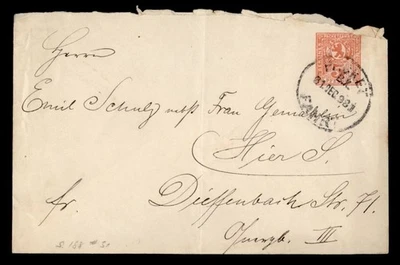 Herrn
Emil Schulz nebst Frau Gemahlin
Hier S.
fr. Dieffenbach Str. 71.
III